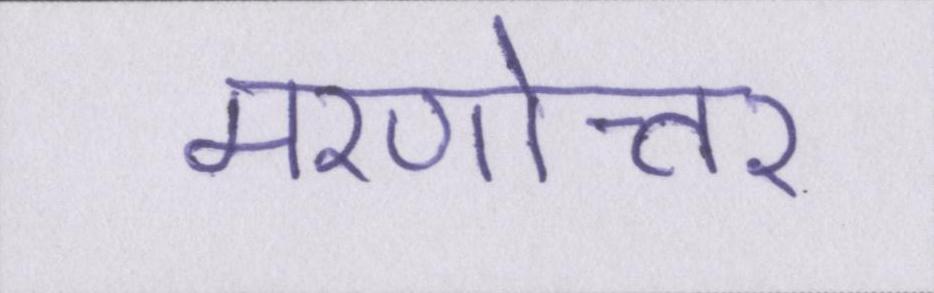 मरणोत्तर